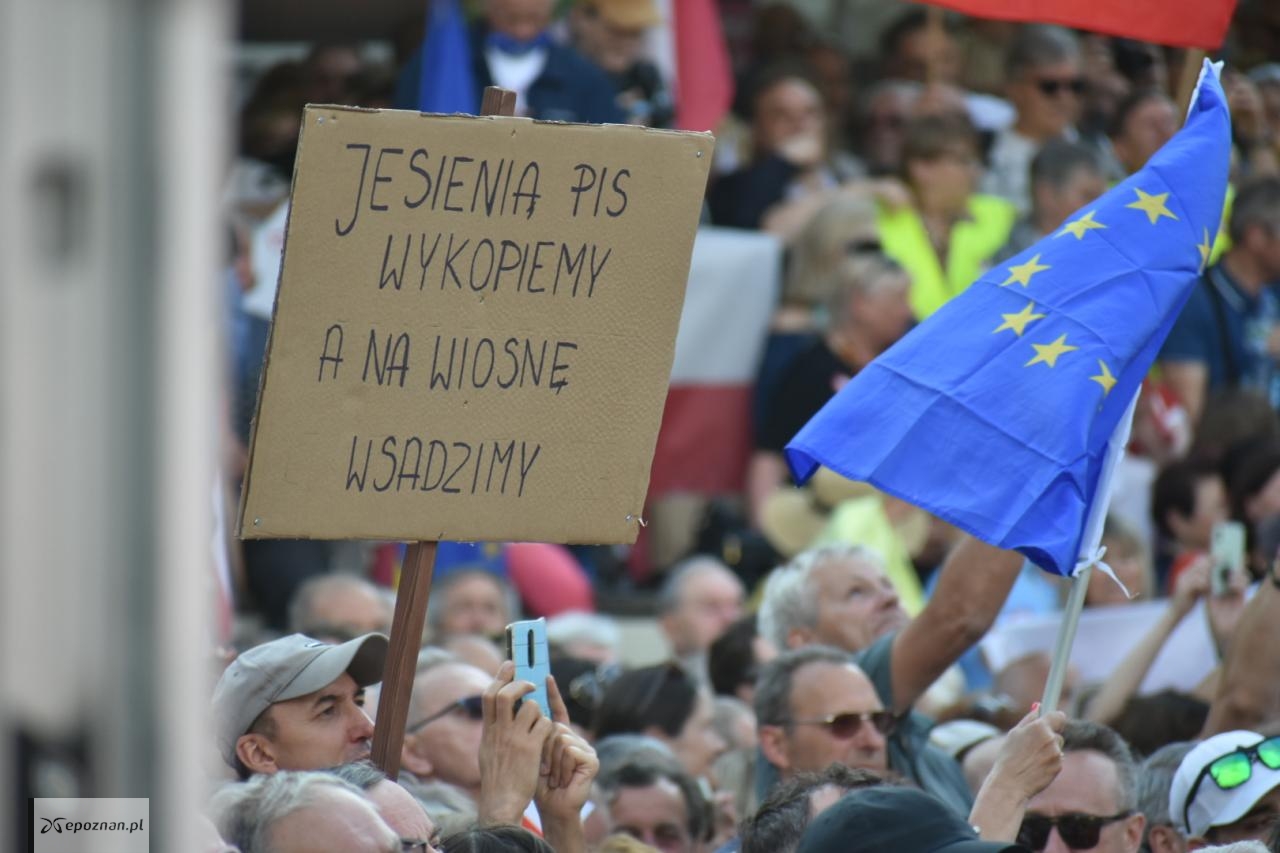 JESIENIĄ PIS
WYKOPIEMY
A NA WIOSNĘ
WSADZIMY
epoznan.pl